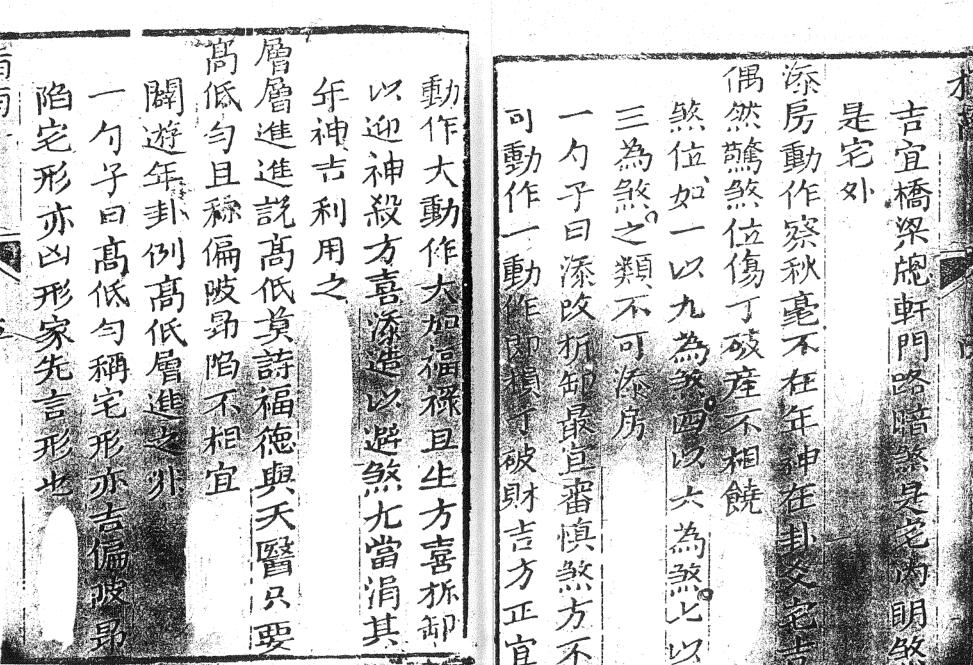 吉宜橋梁牕軒門路暗煞是宅內明煞
是宅外
添房動作察秋毫不在年神在卦爻宅吉
偶然驚煞位傷丁破產不相饒
煞位如一以九為煞四以六為煞七以
三為煞之類不可添房
一勺子曰添改析卸最宜審慎煞方不
可動作一動作即損丁破財吉方正宜
動作大動作大如福祿且生方喜拆卸
以迎神殺方喜添造以避煞尤當涓其
年神吉利用之
層層進進說高低莫詩福德與天醫只要
高低勻且稱偏陂昻陷不相宜
闢遊年卦例高低層進之非
一勺子曰高低勻稱宅形亦吉偏陂昻
陷宅形亦凶形家先言形也